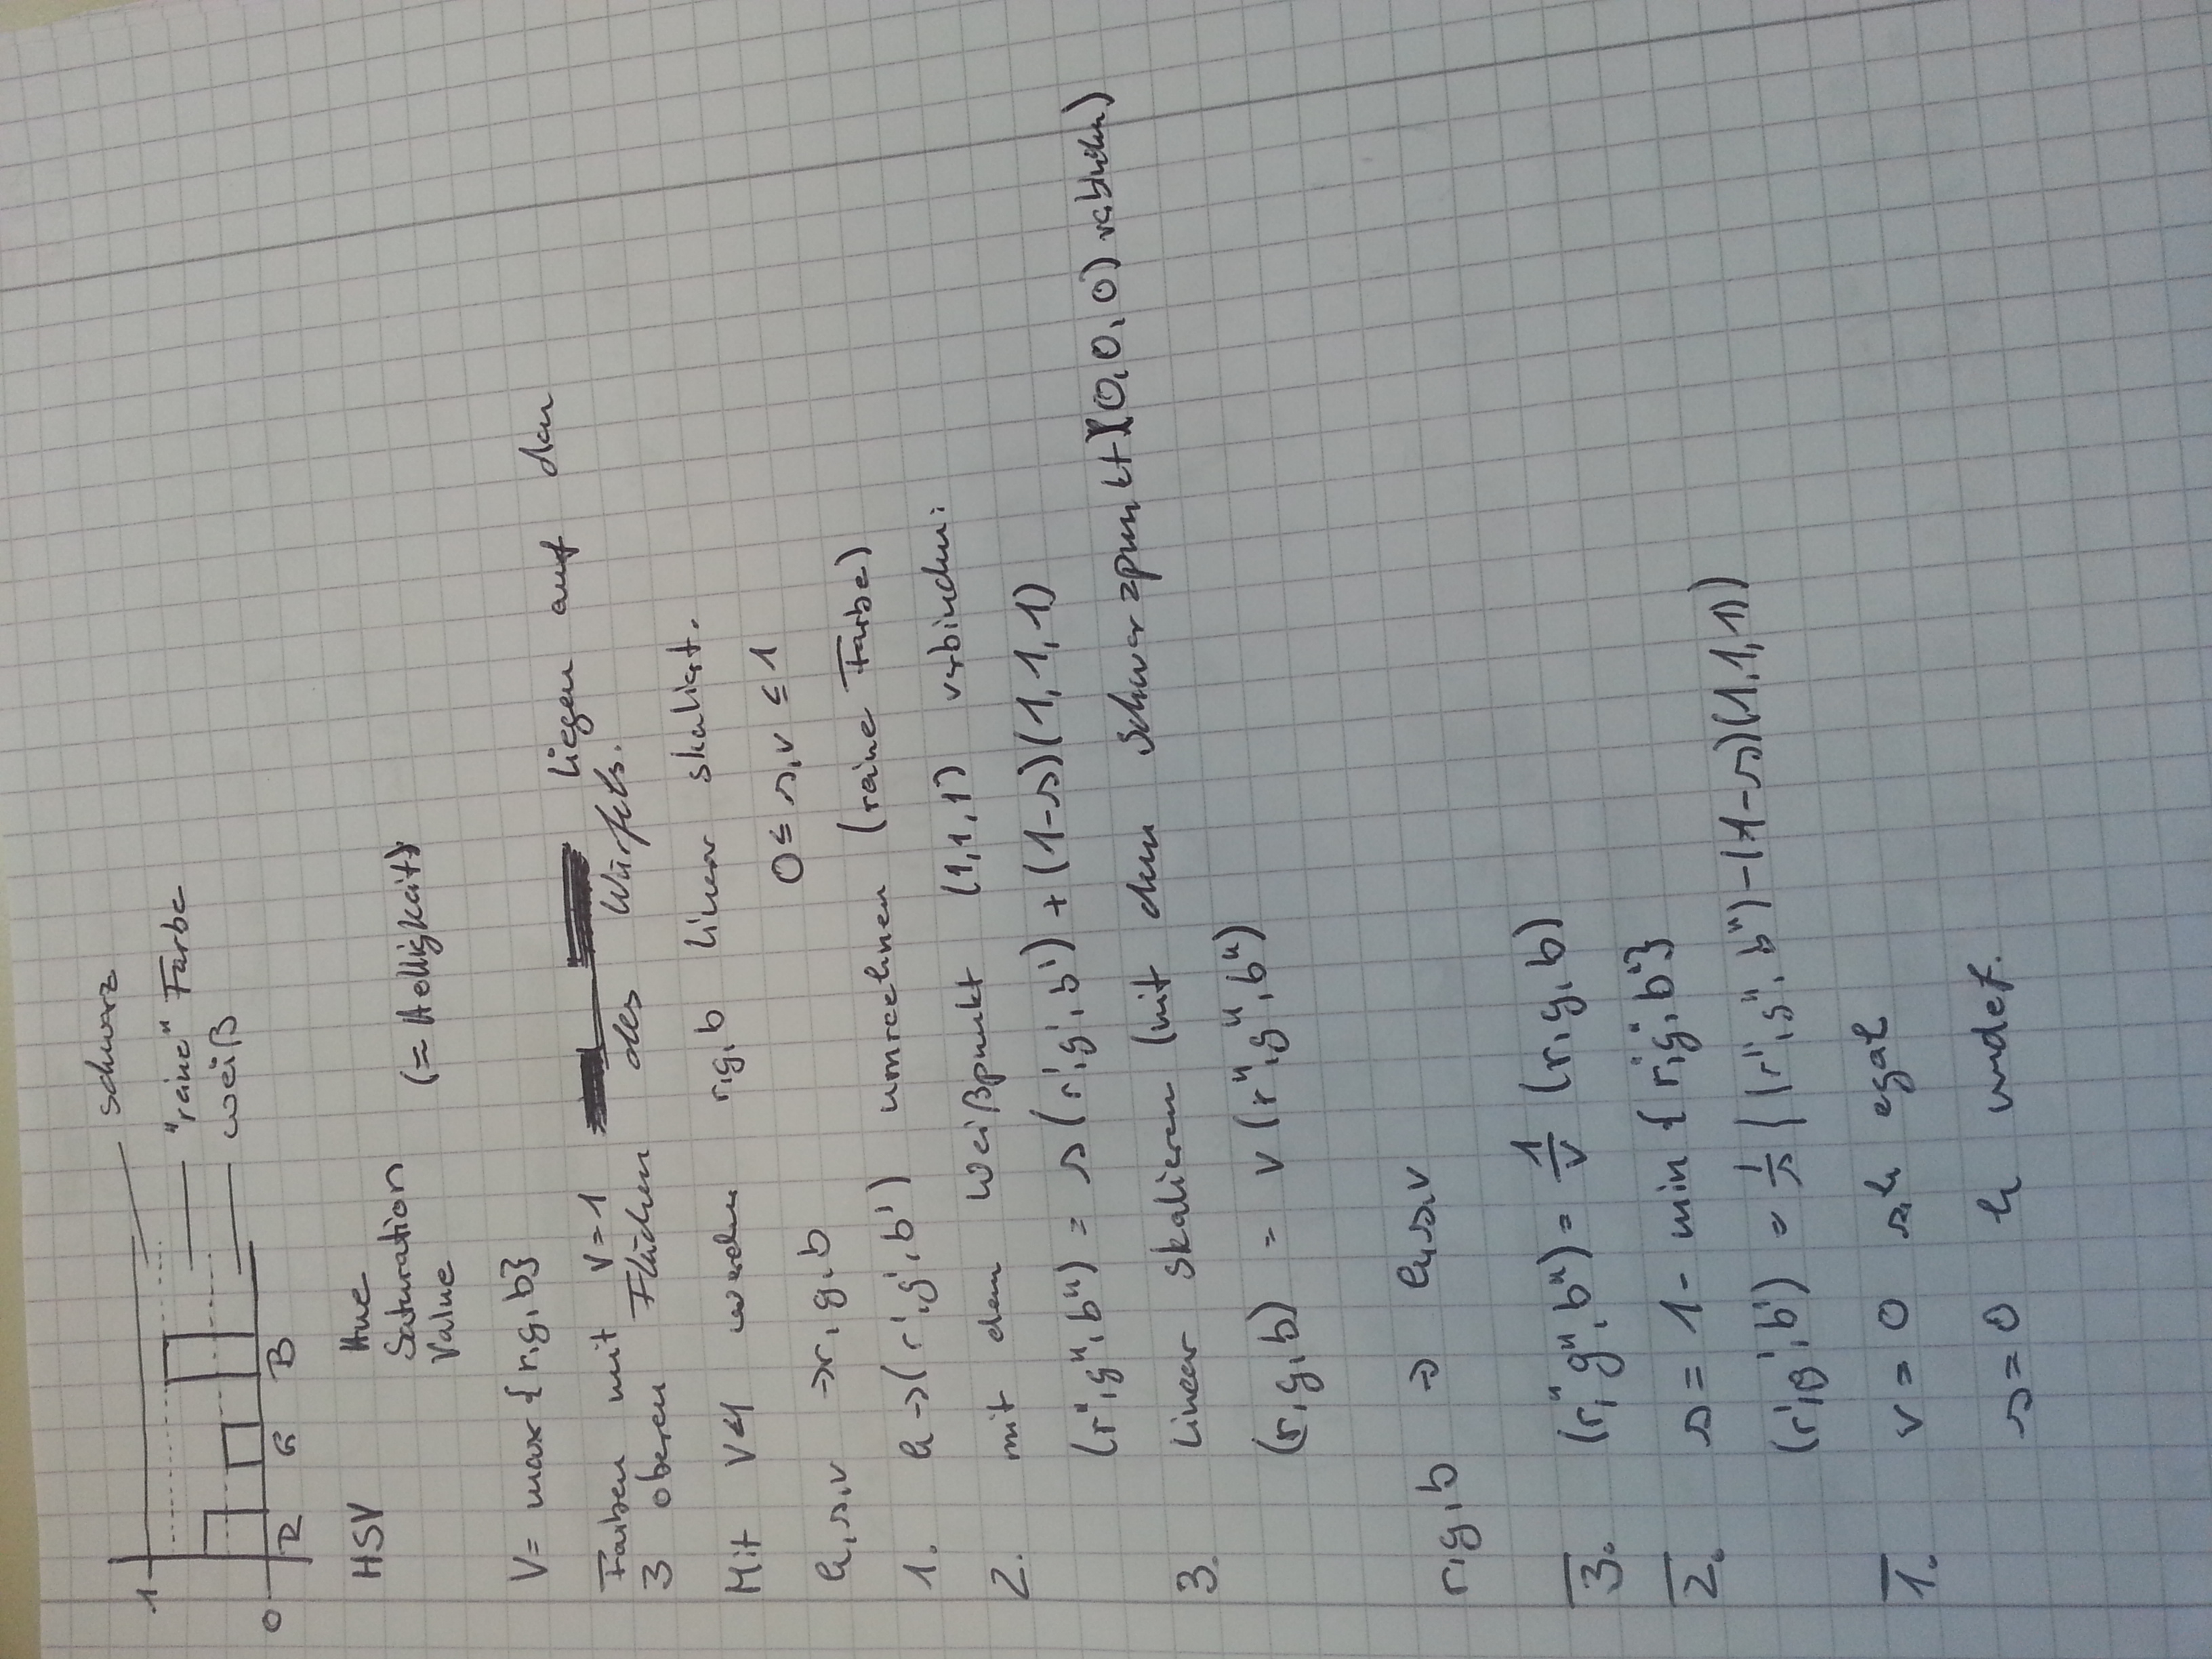 schwarz
1
"reine" Farbe
weiß
0
R G B
HSV Hue
Saturation
Value (= Helligkeit)
V = max {r,g,b}
Farben mit V=1 liegen auf den
3 oberen Flächen des Würfels.
Mit V<1 werden r,g,b linear skaliert.
h,s,v → r,g,b 0 ≤ s,v ≤ 1
1. h → (r',g',b') umrechnen (reine Farbe)
2. mit dem Weißpunkt (1,1,1) verbinden:
(r",g",b") = s(r',g',b') + (1-s)(1,1,1)
3. Linear skalieren (mit dem Schwarzpunkt (0,0,0) verbinden)
(r,g,b) = v(r",g",b")
r,g,b → h,s,v
3. (r,"g",b") = 1/v (r,g,b)
2. s = 1 - min {r",g",b"}
(r',g',b') = 1/s ((r",g",b") - (1-s)(1,1,1))
1. v = 0 s,h egal
s = 0 h undef.